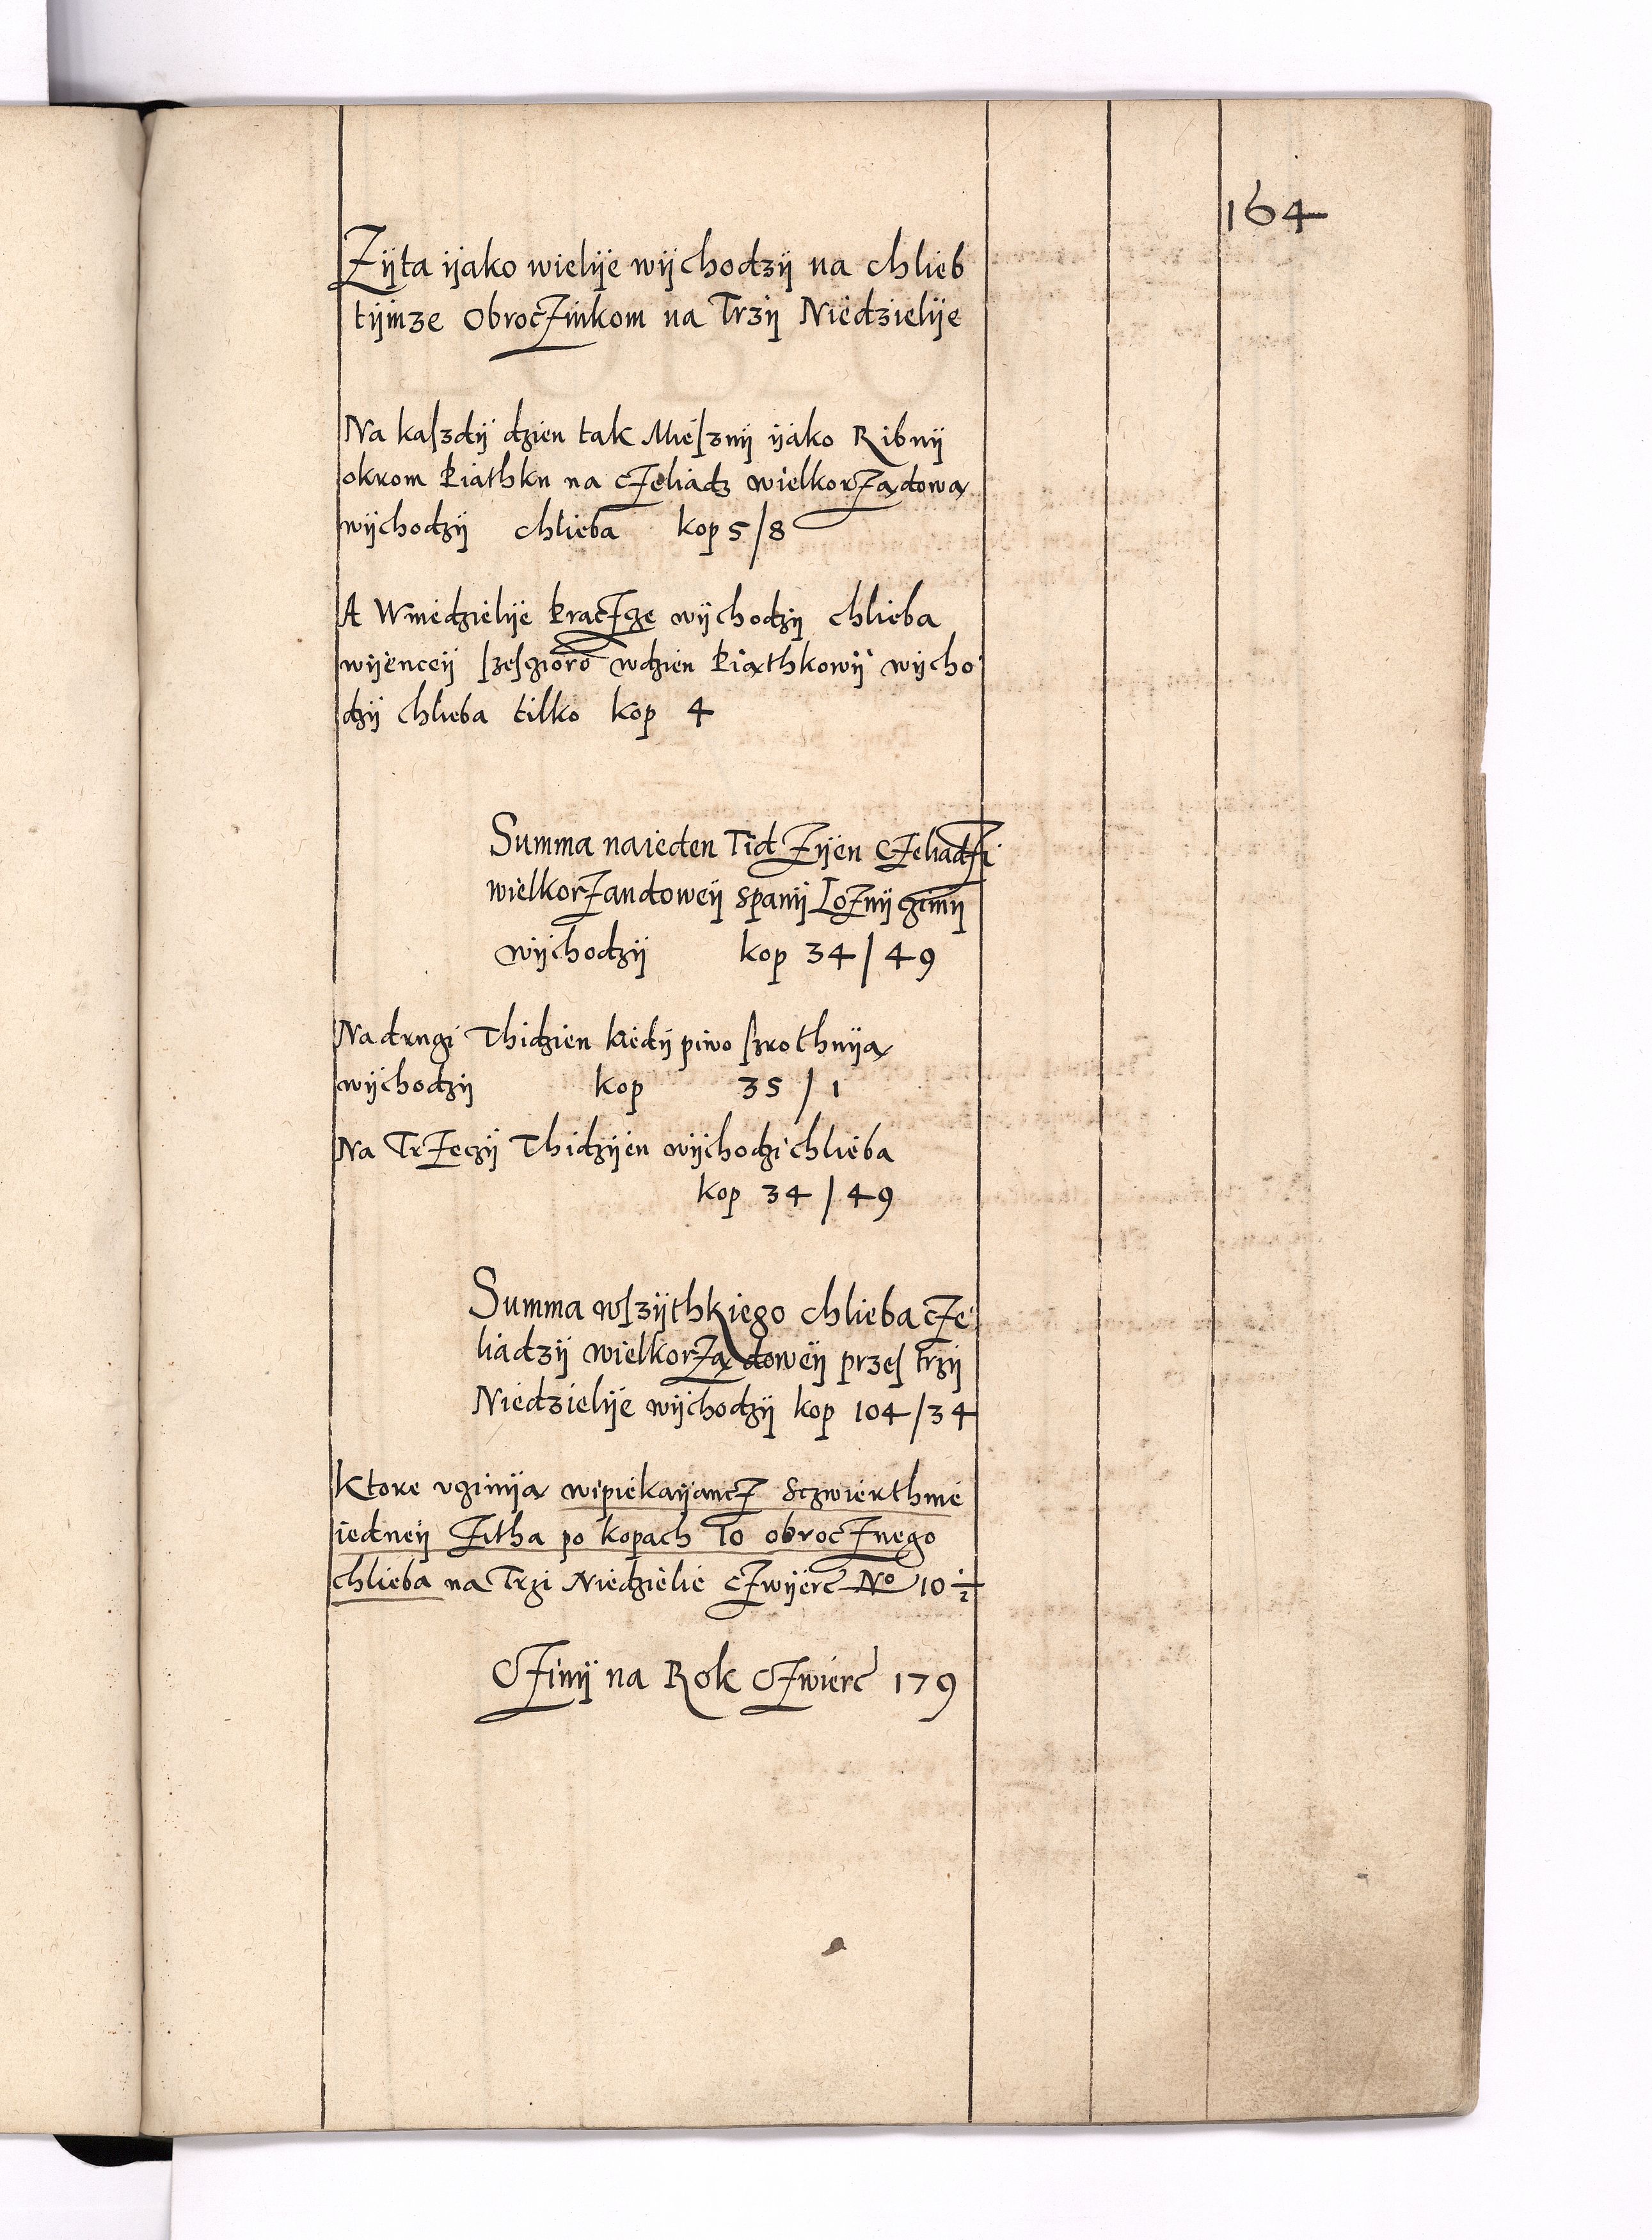 164
Zijta ijako wielije wijchodzij na chlieb
tijmze obroczinkom na Trzij Niedzielije
Na kaſzdij dzien tak Mieſznij ijako Ribnij
okrom Piathku na czeliadz wielkorządowa
wijchodzij chlieba kop 5/8
A Wniedzielije Praczge wijchodzij chlieba
wijenceij ſzeſgioro wdzien Piąthkowij wijcho
dzij chlieba tilko kop 4
Summa naieden Tidzijen czeliadzi
wielkorzandoweij spanij Loznijginij
wijchodzij kop 34/49
Nadrugi Thidzien kiedij piwo ſzrothuija
wijchodzij kop 35/1
Na Trzeczij Thidzijen wijchodzi chlieba
kop 34/49
Summa wſzijthkiego chlieba cze
liadzij wielkorządoweij przeſ trzij
Niedzielije wijchodzij kop 104/34
Ktore vginija wipiekaijancz Sczwierthnie
iedneij zitha po kopach To obrocznego
chlieba na Trzi Niedzielie czwijerc No 10 1/2
Czinij na Rok Czwierc 179